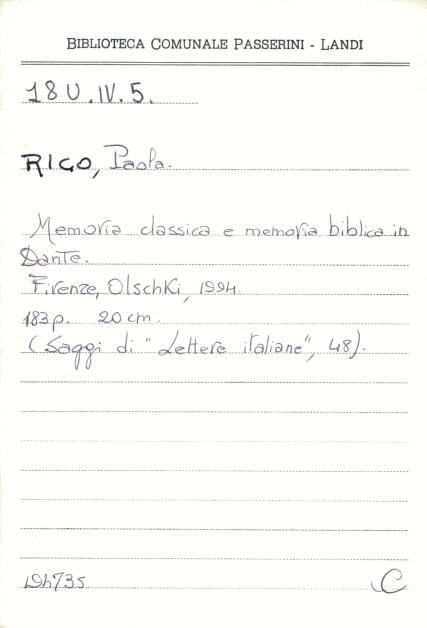 BIBLIOTECA COMUNALE PASSERINI - LANDI
18 U. IV. 5.
RIGO, Paola.
Memoria classica e memoria biblica in
Dante.
Firenze, Olschki, 1994.
183 p. 20 cm.
(Saggi di "Lettere italiane", 48).
C